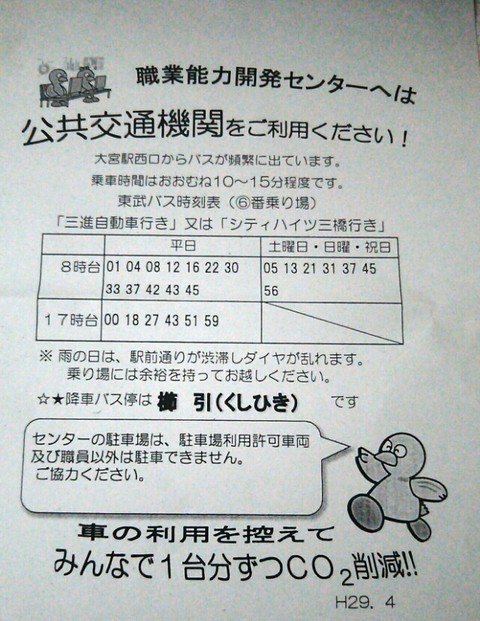 職業能力開発センターへは
公共交通機関をご利用ください！
大宮駅西口からバスが頻繁に出ています。
乗車時間はおおむね10～15分程度です。
東武バス時刻表（⑥番乗り場）
「三進自動車行き」又は「シティハイツ三橋行き」
平日 土曜日・日曜・祝日
8時台 01 04 08 12 16 22 30 05 13 21 31 37 45
33 37 42 43 45 56
17時台 00 18 27 43 51 59
※ 雨の日は、駅前通りが渋滞しダイヤが乱れます。
乗り場には余裕を持ってお越しください。
☆★降車バス停は 櫛 引（くしひき） です
センターの駐車場は、駐車場利用許可車両
及び職員以外は駐車できません。
ご協力ください。
車の利用を控えて
みんなで1台分ずつCO2削減!!
H29. 4